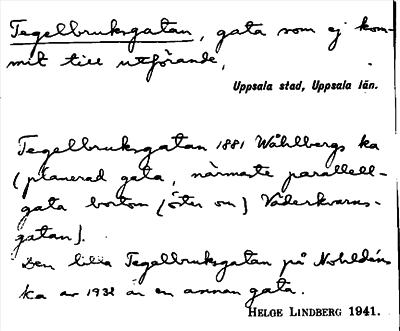 Tegelbruksgatan, gata som ej kom-
mit till utförande,
Uppsala stad, Uppsala län.
Tegelbruksgatan 1881 Wåhlbergs ka
(planerad gata, närmaste parallell-
gata bortom (öster om) Väderkvarns-
gatan).
Den lilla Tegelbruksgatan på Nohldéns
ka av 1938 är en annan gata.
HELGE LINDBERG 1941.